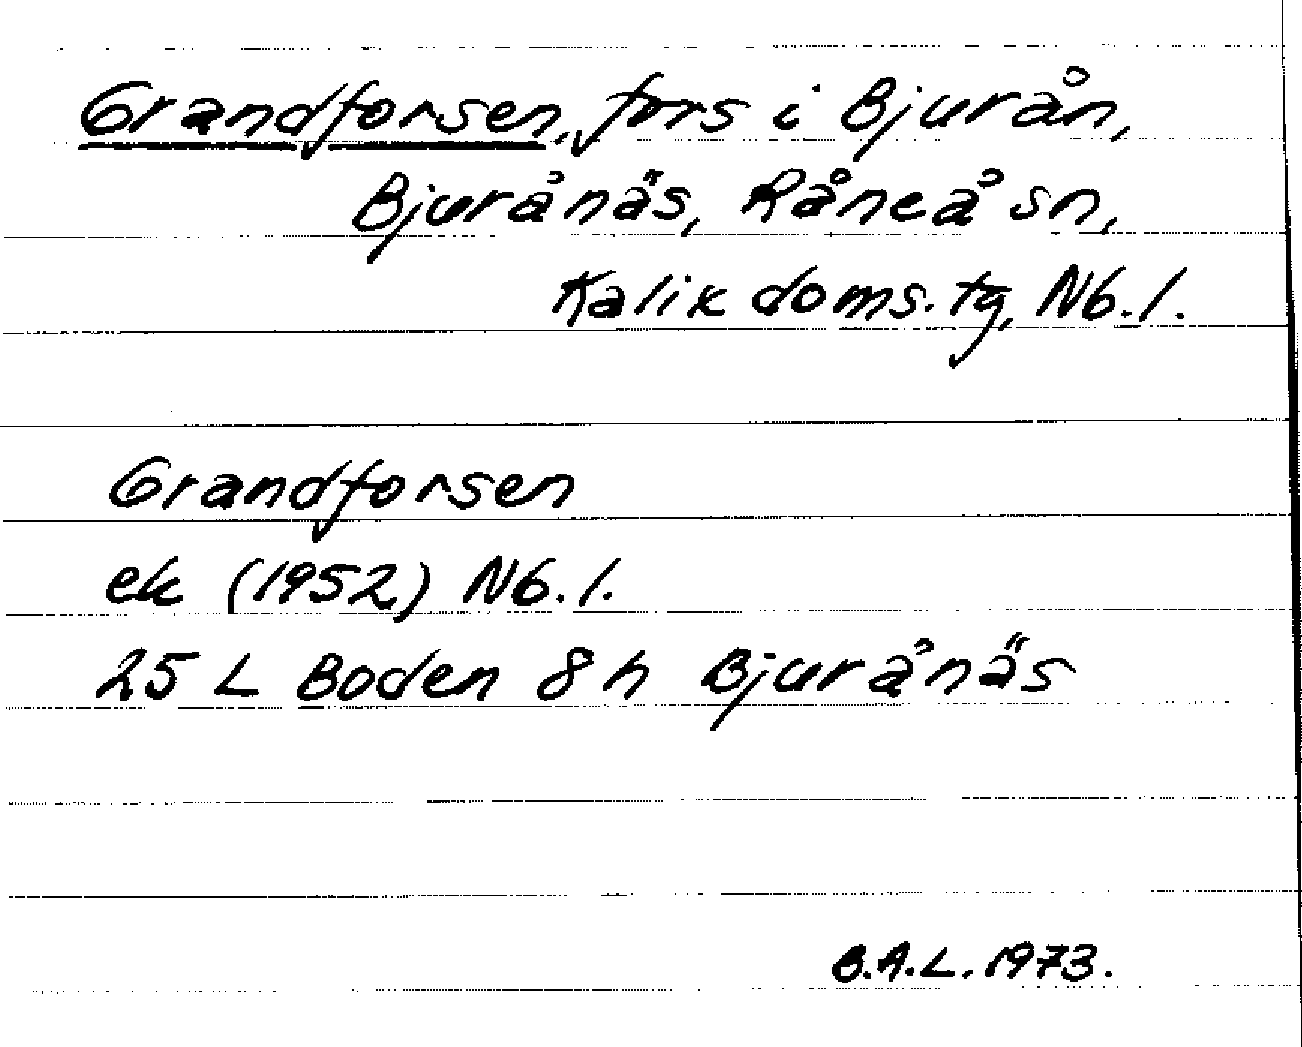 Grandforsen, fors i Bjurån,
Bjurånäs, Råneå sn,
Kalix doms. tg, Nb. l.
Grandforsen
ek (1952) Nb. l.
25 L Boden 8 h Bjurånäs
B.A.L. 1973.